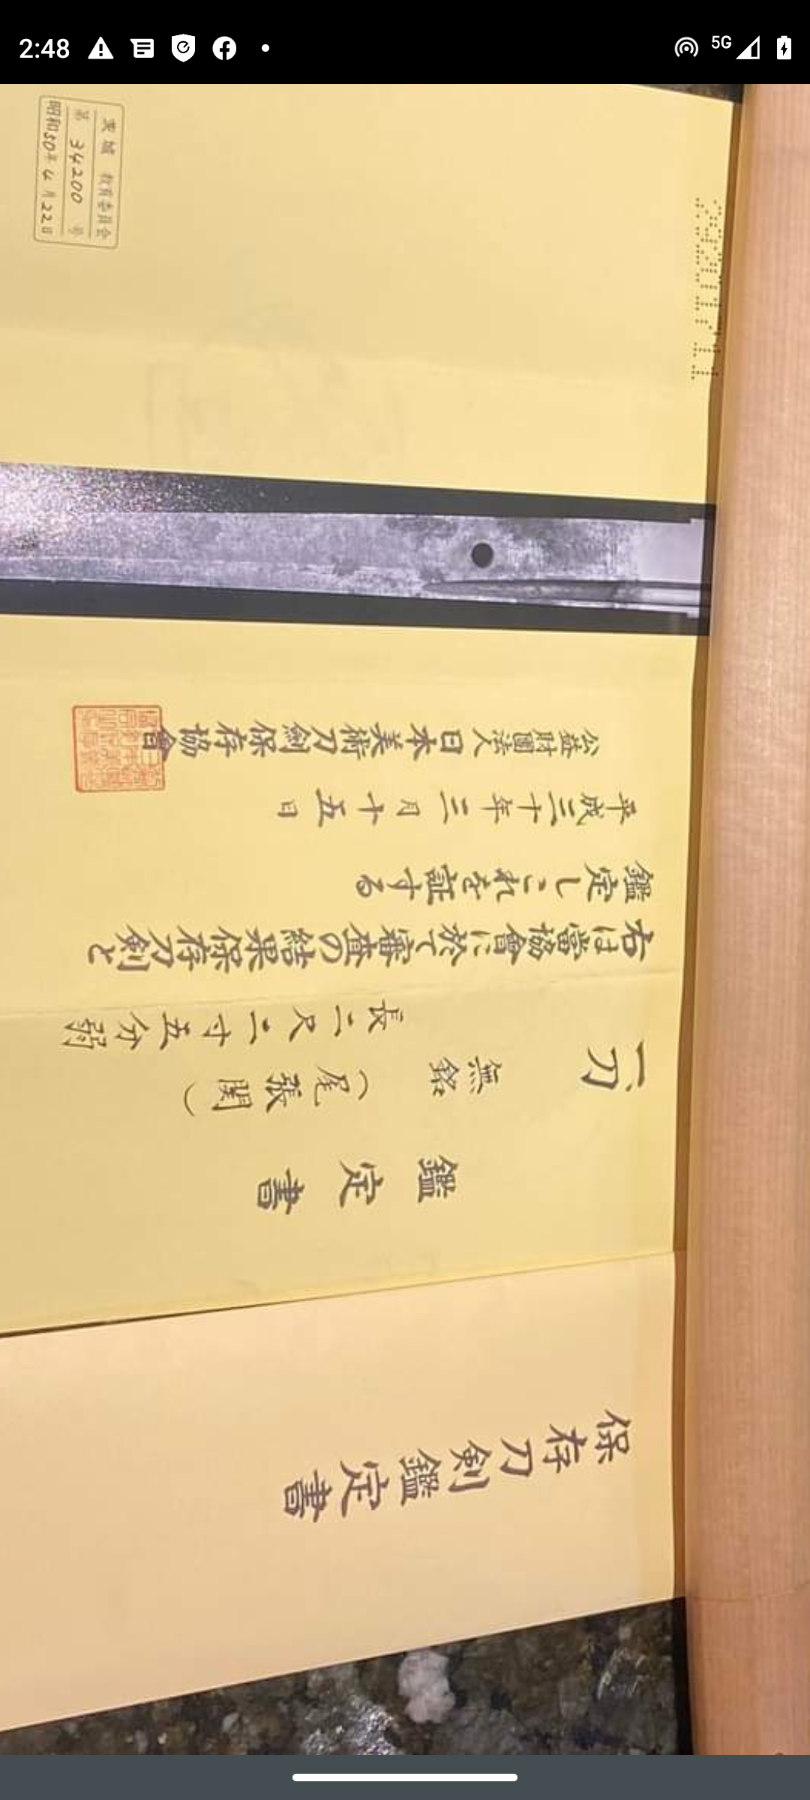 2:48
5G
保存刀剣鑑定書
鑑定書
一、刀 無銘(尾張関)
長二尺二寸五分弱
右は當協會に於て審査の結果保存刀剣と
鑑定しこれを証する
平成三十年三月十五日
公益財團法人日本美術刀劍保存協會
茨城 教育委員会
第 34200 号
昭和50年4月22日